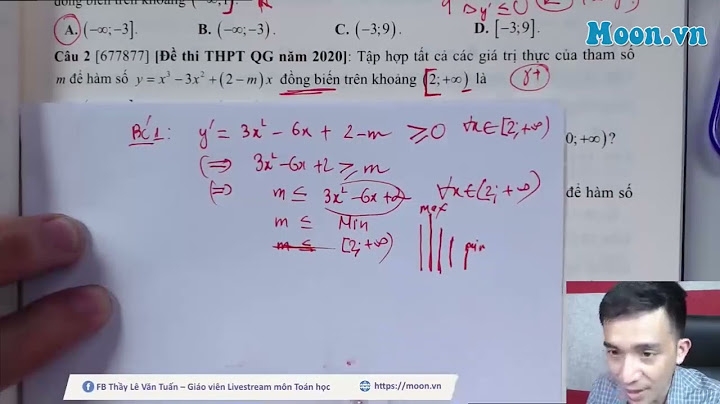 đồng biến trên khoảng (−∞;1]
A. (−∞;−3]. B. (−∞;−3). C. (−3;9). D. [−3;9].
Moon.vn
Câu 2 [677877] [Đề thi THPT QG năm 2020]: Tập hợp tất cả các giá trị thực của tham số
m để hàm số y = x³ − 3x² + (2 − m)x đồng biến trên khoảng (2;+∞) là
B/C1: y' = 3x² − 6x + 2 − m ⩾ 0 ∀x∈[2;+∞)
0;+∞)?
(⇒ 3x² − 6x + 2 ⩾ m
(⇒) m ≤ 3x² − 6x + 2 ∀x∈(2;+∞)
để hàm số
max
m ≤ Min
m ≤ [2;+∞)
min
FB Thầy Lê Văn Tuấn – Giáo viên Livestream môn Toán học
https://moon.vn